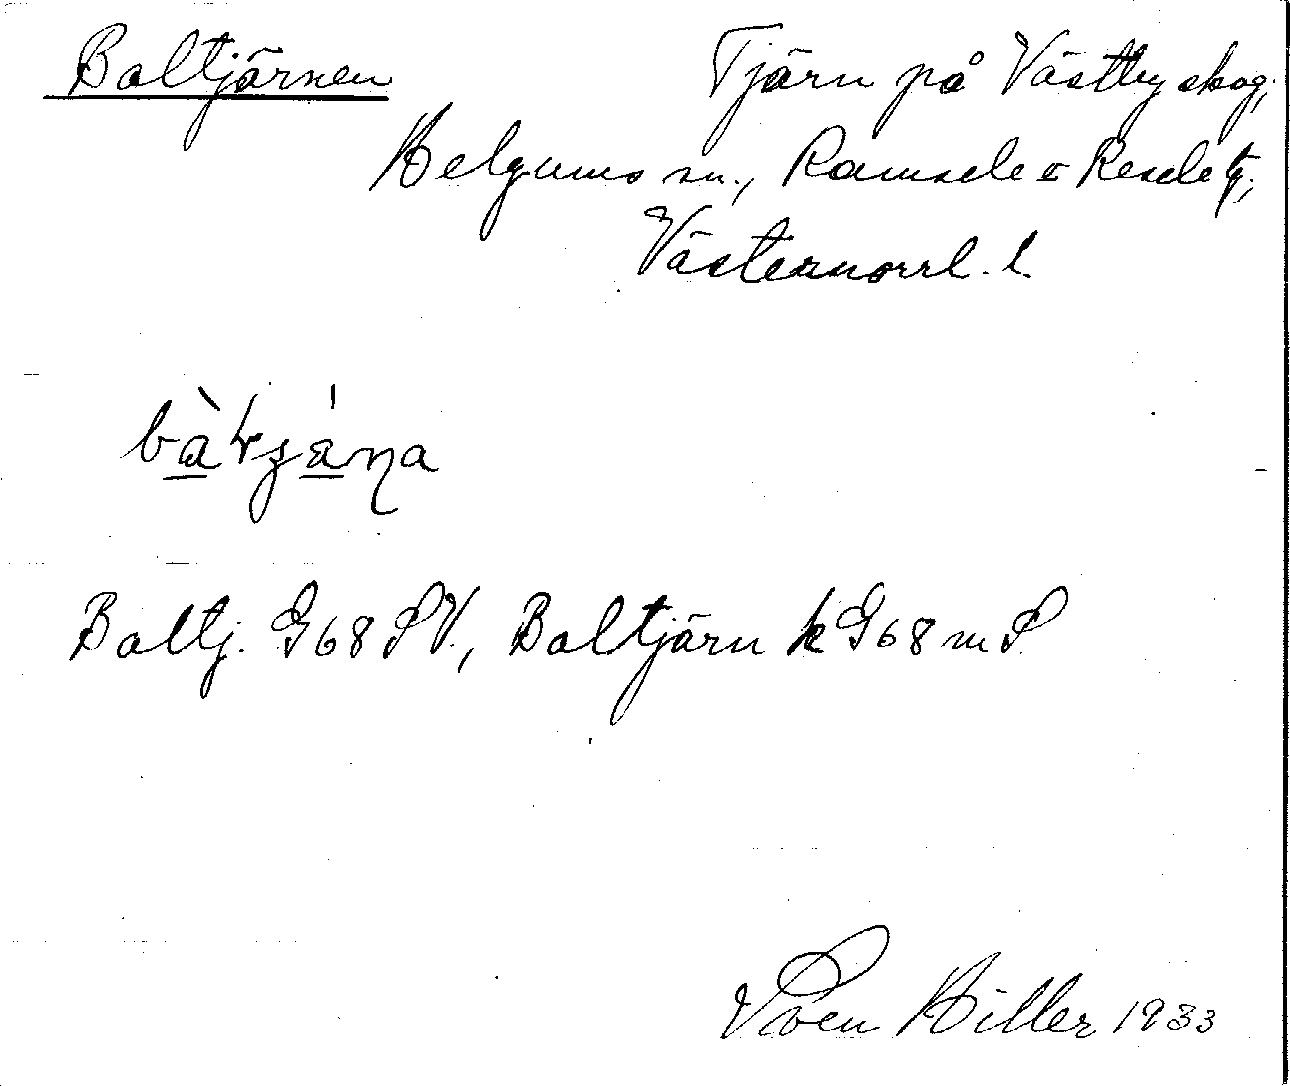 Baltjärnen
Tjärn på Västby skog,
Helgums sn., Ramsele o Resele tg,
Västernorrl. l.
Baltj. G68SV., Baltjärn k G68mS
Sven Hiller 1933